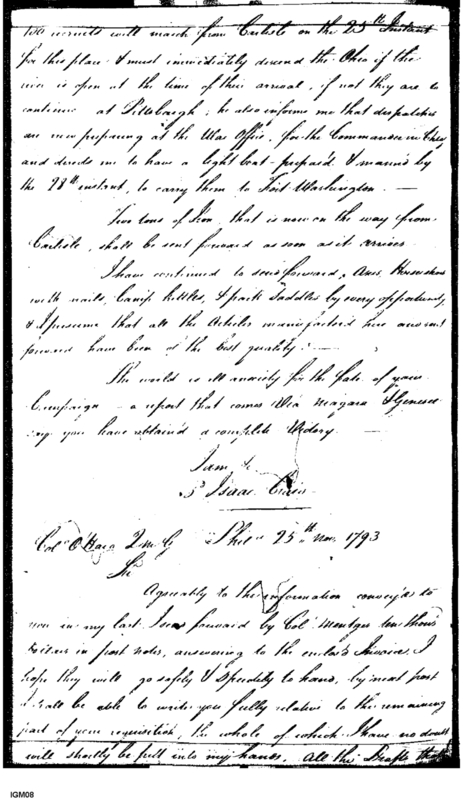 150 recruits will march from Carlisle on the 25th Instant
for this place & must immediately descend the Ohio if the
river is open at the time of their arrival, if not they are to
continue at Pittsburgh; he also informs me that despatches
are now preparing at the War Office, for the Commander in Chief
and directs me to have a light boat prepar'd & mann'd by
the 28th instant, to carry them to Fort Washington. —
Four tons of Iron that is now on the way from
Carlisle, shall be sent forward as soon as it arrives
I have continued to send forward, Axes, Horseshoes
with nails, Camp kettles, & pack Saddles by every oppertunity,
& I presume that all the Articles manufactor'd here and sent
forward have been of the best quality. —
The world is all anxiety for the fate of your
Campaign — a report that comes Via Niagara & Genesee
say you have obtain'd a complete Victory —
I am &c
Isaac Craig
Col. O'Hara Q M G Phila 25th Nov. 1793
Sir
Agreeably to the information convey'd to
you in my last I now forward by Col. Mentges
in post notes, answering to the enclos'd Invoice, I
hope they will go safely & speedily to hand, by next post
I shall be able to write you fully relative to the remaining
part of your requisition, the whole of which I have no doubt
will shortly be put into my hands. All the Drafts that
IGM08